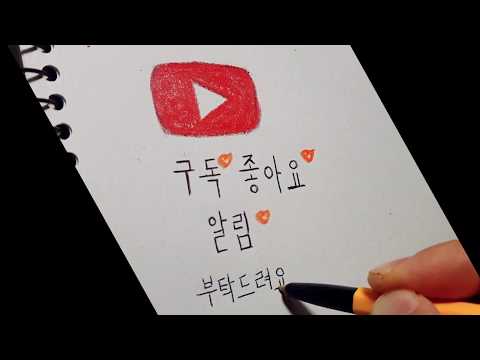 구독 좋아요
알림
부탁드려요